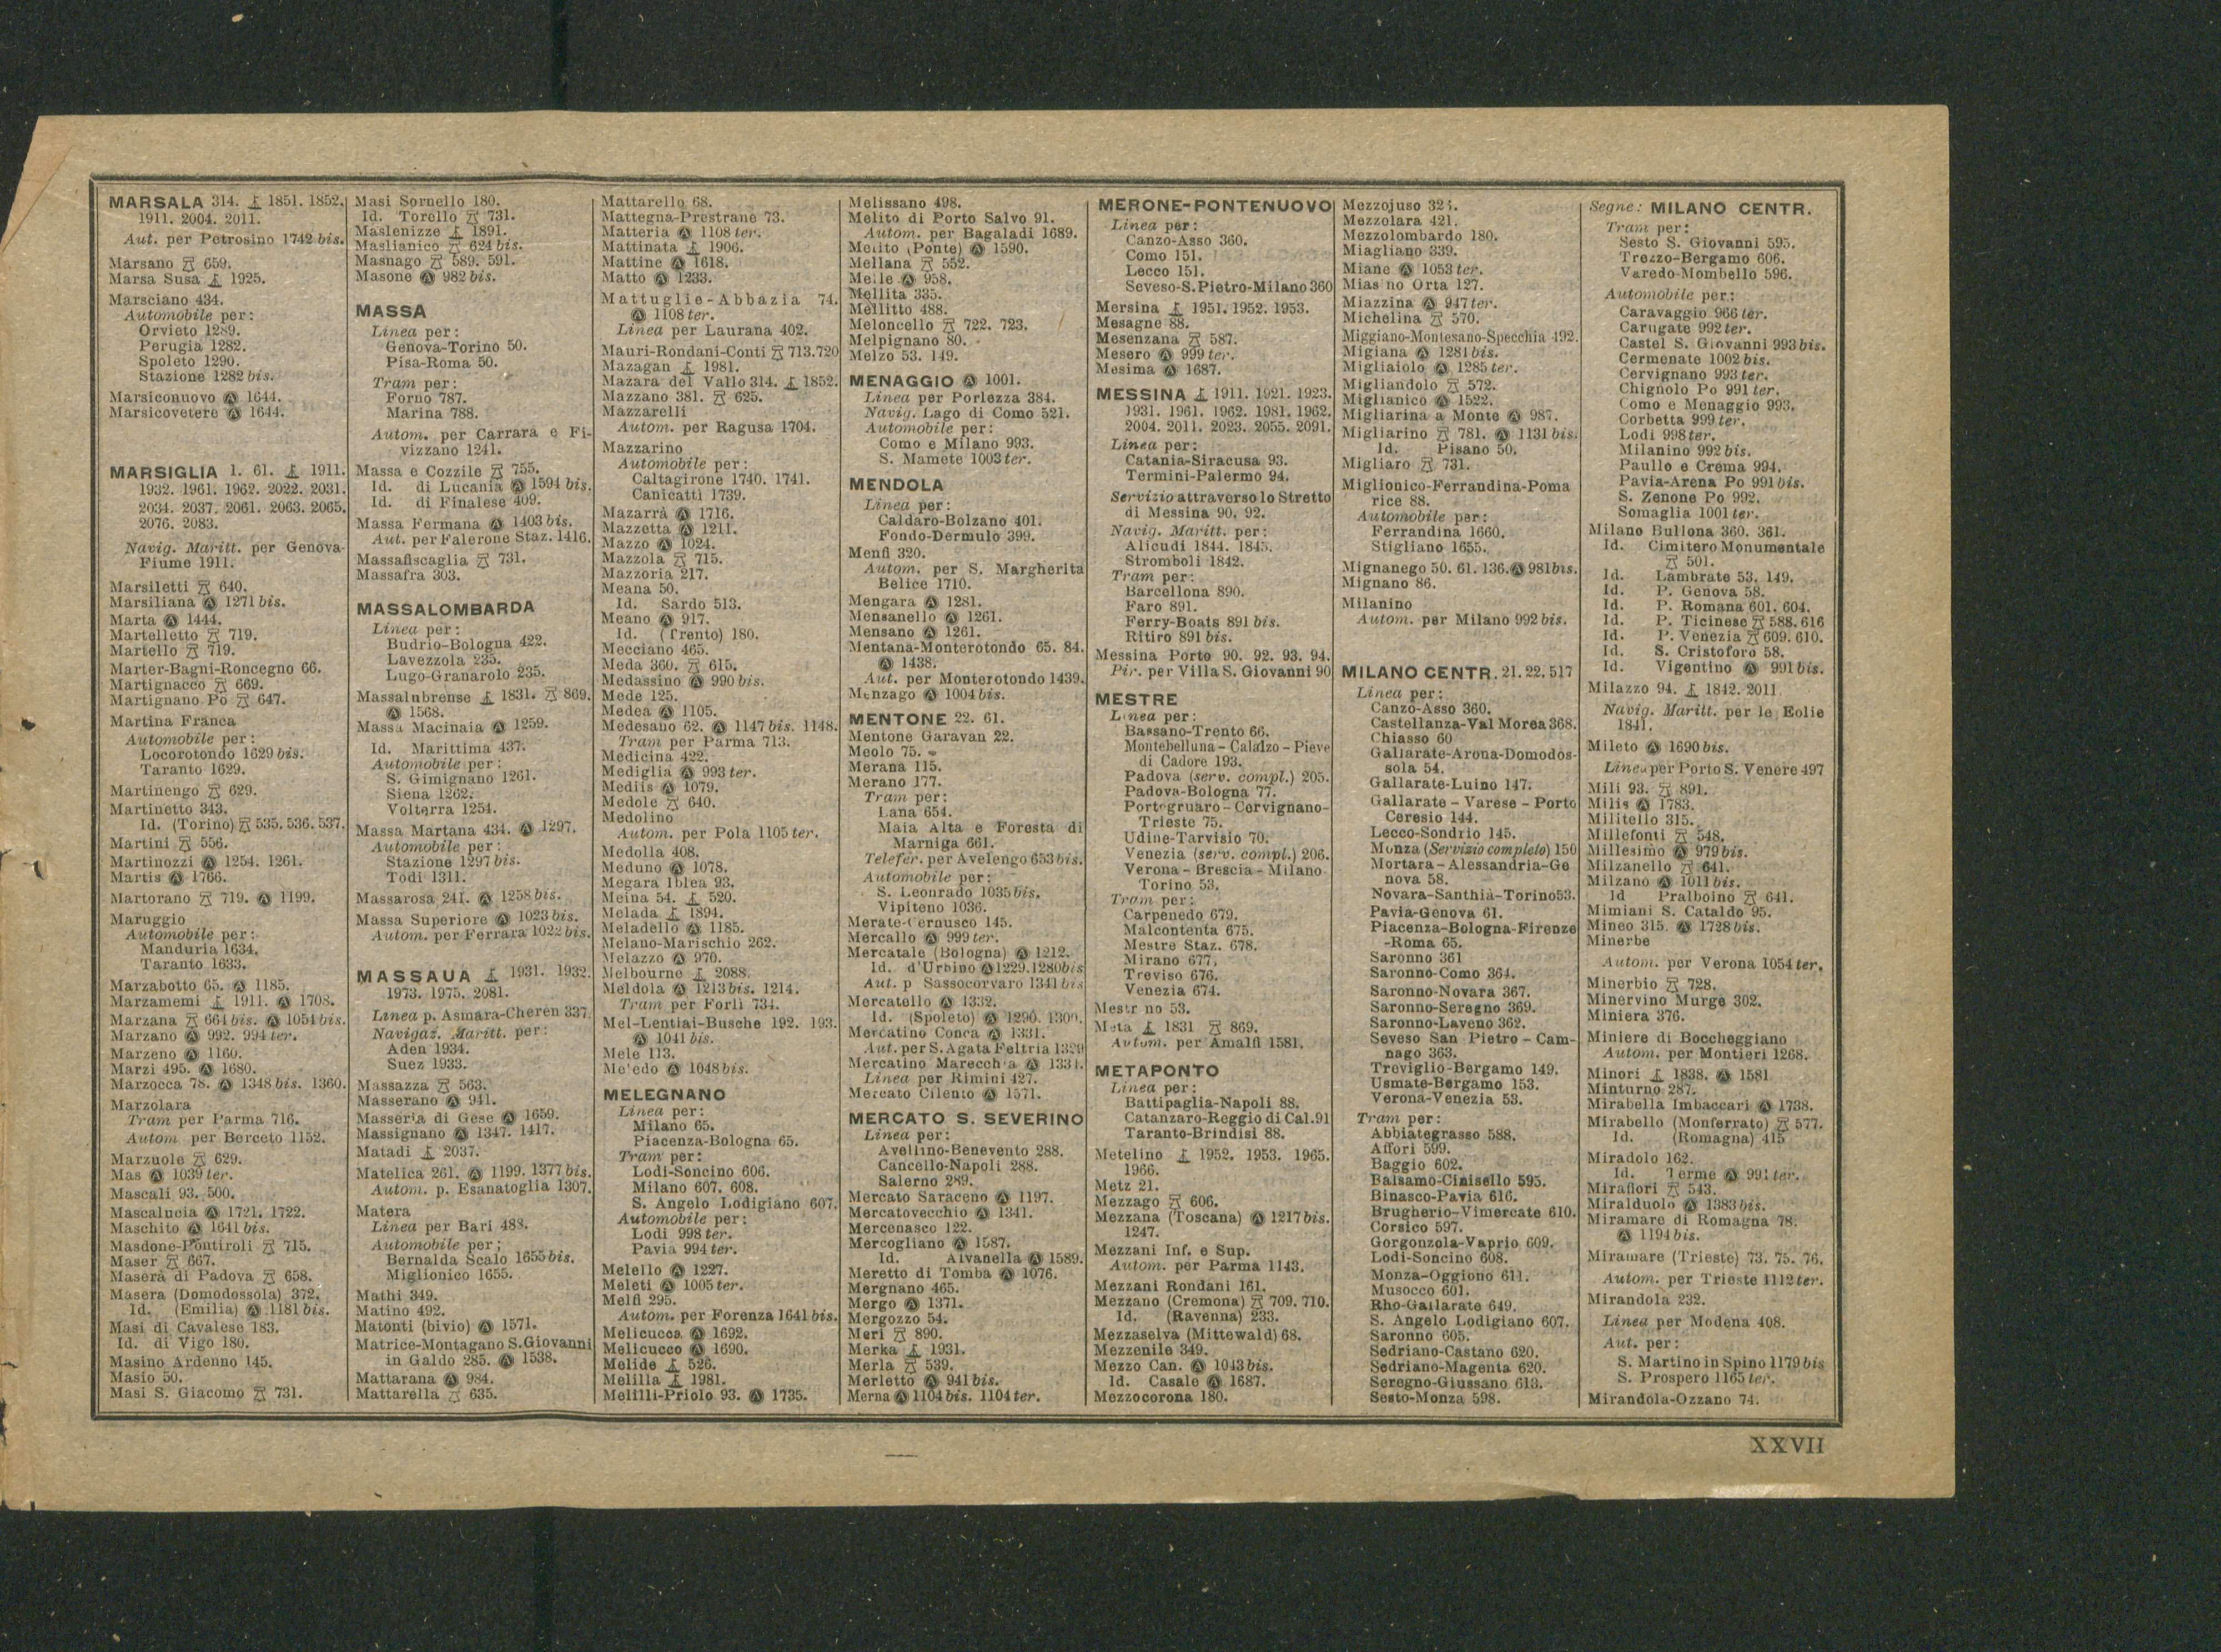 MARSALA 314. 1851. 1852.
1911. 2004. 2011.
Aut. per Petrosino 1742 bis.
Marsano 659.
Marsa Susa 1925.
Marsciano 434.
Automobile per:
Orvieto 1289.
Perugia 1282.
Spoleto 1290.
Stazione 1282 bis.
Marsiconuovo Ⓐ 1644.
Marsicovetere Ⓐ 1644.
MARSIGLIA 1. 61. 1911.
1932. 1961. 1962. 2022. 2031.
2034. 2037. 2061. 2063. 2065.
2076. 2083.
Navig. Maritt. per Genova-
Fiume 1911.
Marsiletti 640.
Marsiliana Ⓐ 1271 bis.
Marta Ⓐ 1444.
Martelletto 719.
Martello 719.
Marter-Bagni-Roncegno 66.
Martignacco 669.
Martignano Po 647.
Martina Franca
Automobile per:
Locorotondo 1629 bis.
Taranto 1629.
Martinengo 629.
Martinetto 343.
Id. (Torino) 535. 536. 537.
Martini 556.
Martinozzi Ⓐ 1254. 1261.
Martis Ⓐ 1766.
Martorano 719. Ⓐ 1199.
Maruggio
Automobile per:
Manduria 1634.
Taranto 1633.
Marzabotto 65. Ⓐ 1185.
Marzamemi 1911. Ⓐ 1708.
Marzana 664 bis. Ⓐ 1054 bis.
Marzano Ⓐ 992. 994 ter.
Marzeno Ⓐ 1160.
Marzi 495. Ⓐ 1680.
Marzocca 78. Ⓐ 1348 bis. 1360.
Marzolara
Tram per Parma 716.
Autom per Berceto 1152.
Marzuole 629.
Mas Ⓐ 1039 ter.
Mascali 93. 500.
Mascalucia Ⓐ 1721. 1722.
Maschito Ⓐ 1641 bis.
Masdone-Pontiroli 715.
Maser 667.
Maserà di Padova 658.
Masera (Domodossola) 372.
Id. (Emilia) Ⓐ 1181 bis.
Masi di Cavalese 183.
Id. di Vigo 180.
Masino Ardenno 145.
Masio 50.
Masi S. Giacomo 731.
Masi Sornello 180.
Id. Torello 731.
Maslenizze 1891.
Maslianico 624 bis.
Masnago 589. 591.
Masone Ⓐ 982 bis.
MASSA
Linea per:
Genova-Torino 50.
Pisa-Roma 50.
Tram per:
Forno 787.
Marina 788.
Autom. per Carrara e Fi-
vizzano 1241.
Massa e Cozzile 755.
Id. di Lucania Ⓐ 1594 bis.
Id. di Finalese 409.
Massa Fermana Ⓐ 1403 bis.
Aut. per Falerone Staz. 1416.
Massafiscaglia 731.
Massafra 303.
MASSALOMBARDA
Linea per:
Budrio-Bologna 422.
Lavezzola 235.
Lugo-Granarolo 235.
Massalubrense 1831. 869.
Ⓐ 1568.
Massa Macinaia Ⓐ 1259.
Id. Marittima 437.
Automobile per:
S. Gimignano 1261.
Siena 1262.
Volterra 1254.
Massa Martana 434. Ⓐ 1297.
Automobile per:
Stazione 1297 bis.
Todi 1311.
Massarosa 241. Ⓐ 1258 bis.
Massa Superiore Ⓐ 1023 bis.
Autom. per Ferrara 1022 bis.
MASSAUA 1931. 1932.
1973. 1975. 2081.
Linea p. Asmara-Cheren 337.
Navigaz. Maritt. per:
Aden 1934.
Suez 1933.
Massazza 563.
Masserano Ⓐ 941.
Masseria di Gese Ⓐ 1659.
Massignano Ⓐ 1347. 1417.
Matadi 2037.
Matelica 261. Ⓐ 1199. 1377 bis.
Autom. p. Esanatoglia 1307.
Matera
Linea per Bari 488.
Automobile per;
Bernalda Scalo 1655 bis.
Miglionico 1655.
Mathi 349.
Matino 492.
Matonti (bivio) Ⓐ 1571.
Matrice-Montagano S. Giovanni
in Galdo 285. Ⓐ 1538.
Mattarana Ⓐ 984.
Mattarella 635.
Mattarello 68.
Mattegna-Prestrane 73.
Matteria Ⓐ 1108 ter.
Mattinata 1906.
Mattine Ⓐ 1618.
Matto Ⓐ 1233.
Mattuglie-Abbazia 74.
Ⓐ 1108 ter.
Linea per Laurana 402.
Mauri-Rondani-Conti 713. 720
Mazagan 1981.
Mazara del Vallo 314. 1852.
Mazzano 381. 625.
Mazzarelli
Autom. per Ragusa 1704.
Mazzarino
Automobile per:
Caltagirone 1740. 1741.
Canicattì 1739.
Mazarrà Ⓐ 1716.
Mazzetta Ⓐ 1211.
Mazzo Ⓐ 1024.
Mazzola 715.
Mazzoria 217.
Meana 50.
Id. Sardo 513.
Meano Ⓐ 917.
Id. (Trento) 180.
Mecciano 465.
Meda 360. 615.
Medassino Ⓐ 990 bis.
Mede 125.
Medea Ⓐ 1105.
Medesano 62. Ⓐ 1147 bis. 1148.
Tram per Parma 713.
Medicina 422.
Mediglia Ⓐ 993 ter.
Mediis Ⓐ 1079.
Medole 640.
Medolino
Autom. per Pola 1105 ter.
Medolla 408.
Meduno Ⓐ 1078.
Megara Iblea 93.
Meina 54. 520.
Melada 1894.
Meladello Ⓐ 1185.
Melano-Marischio 262.
Melazzo Ⓐ 970.
Melbourne 2088.
Meldola Ⓐ 1213 bis. 1214.
Tram per Forlì 734.
Mel-Lentiai-Busche 192. 193.
Ⓐ 1041 bis.
Mele 113.
Meledo Ⓐ 1048 bis.
MELEGNANO
Linea per:
Milano 65.
Piacenza-Bologna 65.
Tram per:
Lodi-Soncino 606.
Milano 607. 608.
S. Angelo Lodigiano 607.
Automobile per:
Lodi 998 ter.
Pavia 994 ter.
Melello Ⓐ 1227.
Meleti Ⓐ 1005 ter.
Melfi 295.
Autom. per Forenza 1641 bis.
Melicucca Ⓐ 1692.
Melicucco Ⓐ 1690.
Melide 526.
Melilla 1981.
Melilli-Priolo 93. Ⓐ 1735.
Melissano 498.
Melito di Porto Salvo 91.
Autom. per Bagaladi 1689.
Melito (Ponte) Ⓐ 1590.
Mellana 552.
Melle Ⓐ 958.
Mellita 335.
Mellitto 488.
Meloncello 722. 723.
Melpignano 80.
Melzo 53. 149.
MENAGGIO Ⓐ 1001.
Linea per Porlezza 384.
Navig. Lago di Como 521.
Automobile per:
Como e Milano 993.
S. Mamete 1003 ter.
MENDOLA
Linea per:
Caldaro-Bolzano 401.
Fondo-Dermulo 399.
Menfi 320.
Autom. per S. Margherita
Belice 1710.
Mengara Ⓐ 1281.
Mensanello Ⓐ 1261.
Mensano Ⓐ 1261.
Mentana-Monterotondo 65. 84.
Ⓐ 1438.
Aut. per Monterotondo 1439.
Menzago Ⓐ 1004 bis.
MENTONE 22. 61.
Mentone Garavan 22.
Meolo 75.
Merana 115.
Merano 177.
Tram per:
Lana 654.
Maia Alta e Foresta di
Marniga 661.
Telefer. per Avelengo 653 bis.
Automobile per:
S. Leonrado 1035 bis.
Vipiteno 1036.
Merate-Cernusco 145.
Mercallo Ⓐ 999 ter.
Mercatale (Bologna) Ⓐ 1212.
Id. d'Urbino Ⓐ 1229. 1280 bis
Aut. p Sassocorvaro 1341 bis
Mercatello Ⓐ 1332.
Id. (Spoleto) Ⓐ 1290. 1300.
Mercatino Conca Ⓐ 1331.
Aut. per S. Agata Feltria 1329
Mercatino Marecchia Ⓐ 1331.
Linea per Rimini 427.
Mercato Cilento Ⓐ 1571.
MERCATO S. SEVERINO
Linea per:
Avellino-Benevento 288.
Cancello-Napoli 288.
Salerno 289.
Mercato Saraceno Ⓐ 1197.
Mercatovecchio Ⓐ 1341.
Mercenasco 122.
Mercogliano Ⓐ 1587.
Id. Alvanella Ⓐ 1589.
Meretto di Tomba Ⓐ 1076.
Mergnano 465.
Mergo Ⓐ 1371.
Mergozzo 54.
Meri 890.
Merka 1931.
Merla 539.
Merletto Ⓐ 941 bis.
Merna Ⓐ 1104 bis. 1104 ter.
MERONE-PONTENUOVO
Linea per:
Canzo-Asso 360.
Como 151.
Lecco 151.
Seveso-S. Pietro-Milano 360
Mersina 1951. 1952. 1953.
Mesagne 88.
Mesenzana 587.
Mesero Ⓐ 999 ter.
Mesima Ⓐ 1687.
MESSINA 1911. 1921. 1923.
1931. 1961. 1962. 1981. 1962.
2004. 2011. 2023. 2055. 2091.
Linea per:
Catania-Siracusa 93.
Termini-Palermo 94.
Servizio attraverso lo Stretto
di Messina 90. 92.
Navig. Maritt. per:
Alicudi 1844. 1845.
Stromboli 1842.
Tram per:
Barcellona 890.
Faro 891.
Ferry-Boats 891 bis.
Ritiro 891 bis.
Messina Porto 90. 92. 93. 94.
Pir. per Villa S. Giovanni 90
MESTRE
Linea per:
Bassano-Trento 66.
Montebelluna - Calalzo - Pieve
di Cadore 193.
Padova (serv. compl.) 205.
Padova-Bologna 77.
Portogruaro - Cervignano-
Trieste 75.
Udine-Tarvisio 70.
Venezia (serv. compl.) 206.
Verona - Brescia - Milano-
Torino 53.
Tram per:
Carpenedo 679.
Malcontenta 675.
Mestre Staz. 678.
Mirano 677.
Treviso 676.
Venezia 674.
Mestrino 53.
Meta 1831 869.
Autom. per Amalfi 1581.
METAPONTO
Linea per:
Battipaglia-Napoli 88.
Catanzaro-Reggio di Cal. 91
Taranto-Brindisi 88.
Metelino 1952. 1953. 1965.
1966.
Metz 21.
Mezzago 606.
Mezzana (Toscana) Ⓐ 1217 bis.
1247.
Mezzani Inf. e Sup.
Autom. per Parma 1143.
Mezzani Rondani 161.
Mezzano (Cremona) 709. 710.
Id. (Ravenna) 233.
Mezzaselva (Mittewald) 68.
Mezzenile 349.
Mezzo Can. Ⓐ 1043 bis.
Id. Casale Ⓐ 1687.
Mezzocorona 180.
Mezzojuso 323.
Mezzolara 421.
Mezzolombardo 180.
Miagliano 339.
Miane Ⓐ 1053 ter.
Mias no Orta 127.
Miazzina Ⓐ 947 ter.
Michelina 570.
Miggiano-Montesano-Specchia 492.
Migiana Ⓐ 1281 bis.
Migliaiolo Ⓐ 1285 ter.
Migliandolo 572.
Miglianico Ⓐ 1522.
Migliarina a Monte Ⓐ 987.
Migliarino 781. Ⓐ 1131 bis.
Id. Pisano 50.
Migliaro 731.
Miglionico-Ferrandina-Poma
rice 88.
Automobile per:
Ferrandina 1660.
Stigliano 1655.
Mignanego 50. 61. 136. Ⓐ 981 bis.
Mignano 86.
Milanino
Autom. per Milano 992 bis.
MILANO CENTR. 21. 22. 517
Linea per:
Canzo-Asso 360.
Castellanza-Val Morea 368.
Chiasso 60
Gallarate-Arona-Domodos-
sola 54.
Gallarate-Luino 147.
Gallarate - Varese - Porto
Ceresio 144.
Lecco-Sondrio 145.
Monza (Servizio completo) 150
Mortara - Alessandria-Ge
nova 58.
Novara-Santhià-Torino 53.
Pavia-Genova 61.
Piacenza-Bologna-Firenze
-Roma 65.
Saronno 361
Saronno-Como 364.
Saronno-Novara 367.
Saronno-Seregno 369.
Saronno-Laveno 362.
Seveso San Pietro - Cam-
nago 363.
Treviglio-Bergamo 149.
Usmate-Bergamo 153.
Verona-Venezia 53.
Tram per:
Abbiategrasso 588.
Affori 599.
Baggio 602.
Balsamo-Cinisello 595.
Binasco-Pavia 616.
Brugherio-Vimercate 610.
Corsico 597.
Gorgonzola-Vaprio 609.
Lodi-Soncino 608.
Monza-Oggiono 611.
Musocco 601.
Rho-Gallarate 649.
S. Angelo Lodigiano 607.
Saronno 605.
Sedriano-Castano 620.
Sedriano-Magenta 620.
Seregno-Giussano 613.
Sesto-Monza 598.
Segue: MILANO CENTR.
Tram per:
Sesto S. Giovanni 595.
Trezzo-Bergamo 606.
Varedo-Mombello 596.
Automobile per:
Caravaggio 966 ter.
Carugate 992 ter.
Castel S. Giovanni 993 bis.
Cermenate 1002 bis.
Cervignano 993 ter.
Chignolo Po 991 ter.
Como e Menaggio 993.
Corbetta 999 ter.
Lodi 998 ter.
Milanino 992 bis.
Paullo e Crema 994.
Pavia-Arena Po 991 bis.
S. Zenone Po 992.
Somaglia 1001 ter.
Milano Bullona 360. 361.
Id. Cimitero Monumentale
501.
Id. Lambrate 53. 149.
Id. P. Genova 58.
Id. P. Romana 601. 604.
Id. P. Ticinese 588. 616
Id. P. Venezia 609. 610.
Id. S. Cristoforo 58.
Id. Vigentino Ⓐ 991 bis.
Milazzo 94. 1842. 2011
Navig. Maritt. per le Eolie
1841.
Mileto Ⓐ 1690 bis.
Linea per Porto S. Venere 497
Mili 93. 891.
Milis Ⓐ 1783.
Militello 315.
Millefonti 548.
Millesimo Ⓐ 979 bis.
Milzanello 641.
Milzano Ⓐ 1011 bis.
Id Pralboino 641.
Mimiani S. Cataldo 95.
Mineo 315. Ⓐ 1728 bis.
Minerbe
Autom. per Verona 1054 ter.
Minerbio 728.
Minervino Murge 302.
Miniera 376.
Miniere di Boccheggiano
Autom. per Montieri 1268.
Minori 1838. Ⓐ 1581
Minturno 287.
Mirabella Imbaccari Ⓐ 1738.
Mirabello (Monferrato) 577.
Id. (Romagna) 415
Miradolo 162.
Id. Terme Ⓐ 991 ter.
Miraflori 543.
Miralduolo Ⓐ 1383 bis.
Miramare di Romagna 78.
Ⓐ 1194 bis.
Miramare (Trieste) 73. 75. 76.
Autom. per Trieste 1112 ter.
Mirandola 232.
Linea per Modena 408.
Aut. per:
S. Martino in Spino 1179 bis
S. Prospero 1165 ter.
Mirandola-Ozzano 74.
XXVII